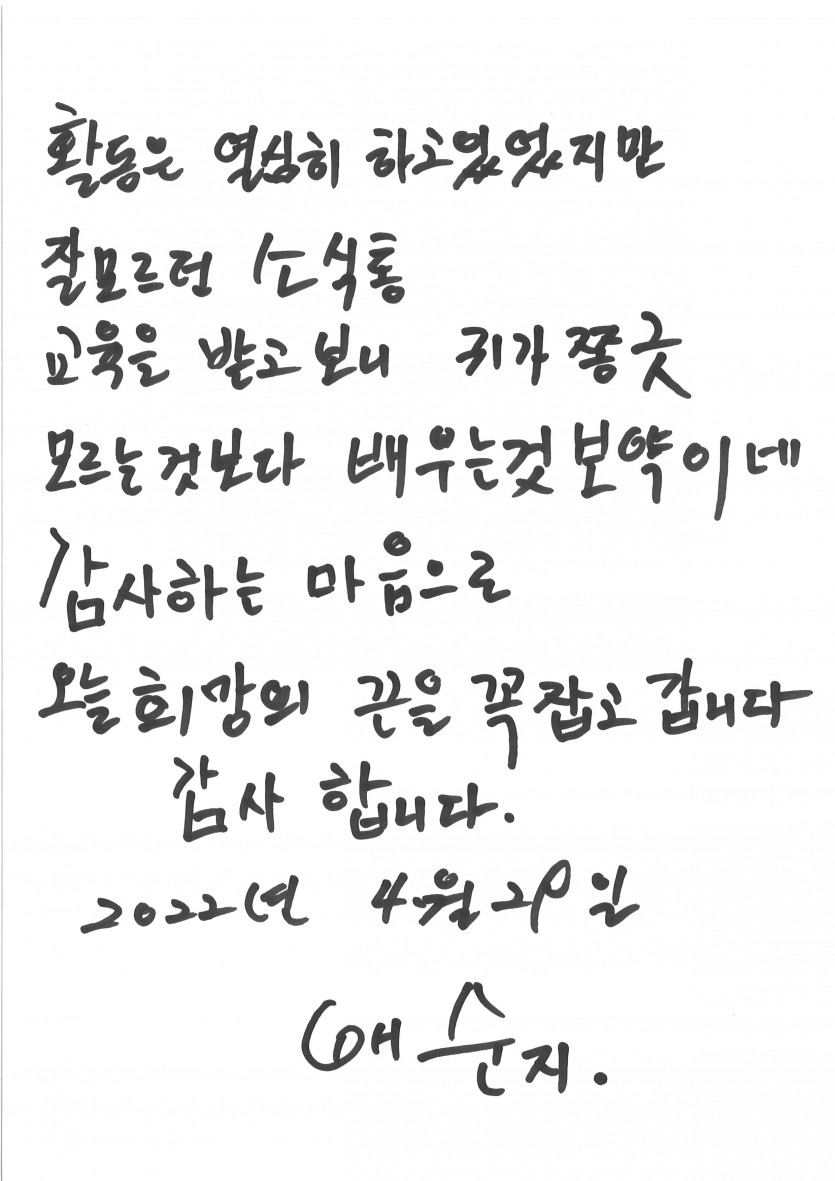 활동은 열심히 하고있었지만
잘모르던 소식통
교육을 받고 보니 귀가 쫑긋
모르는것보다 배우는것 보약이네
감사하는 마음으로
오늘 희망의 끈을 꼭잡고 갑니다
감사 합니다.
2022년 4월 29일
순지.